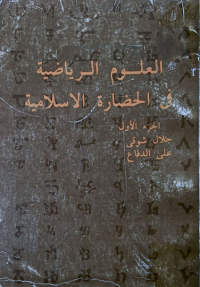 العلوم الرياضية
في الحضارة الاسلامية
الجزء الأول
جلال شوقي
علي الدفاع